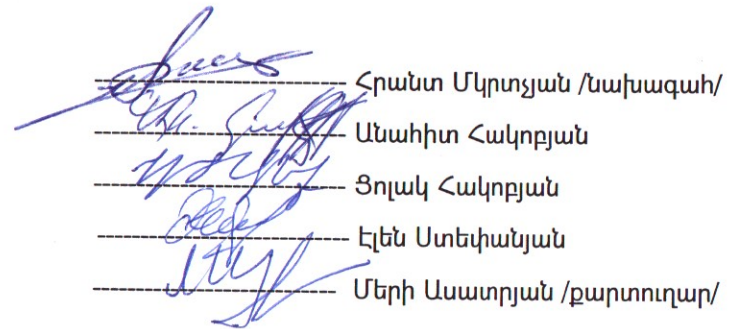 Հրանտ Մկրտչյան /նախագահ/
Անահիտ Հակոբյան
Ցոլակ Հակոբյան
Էլեն Ստեփանյան
Մերի Ասատրյան /քարտուղար/